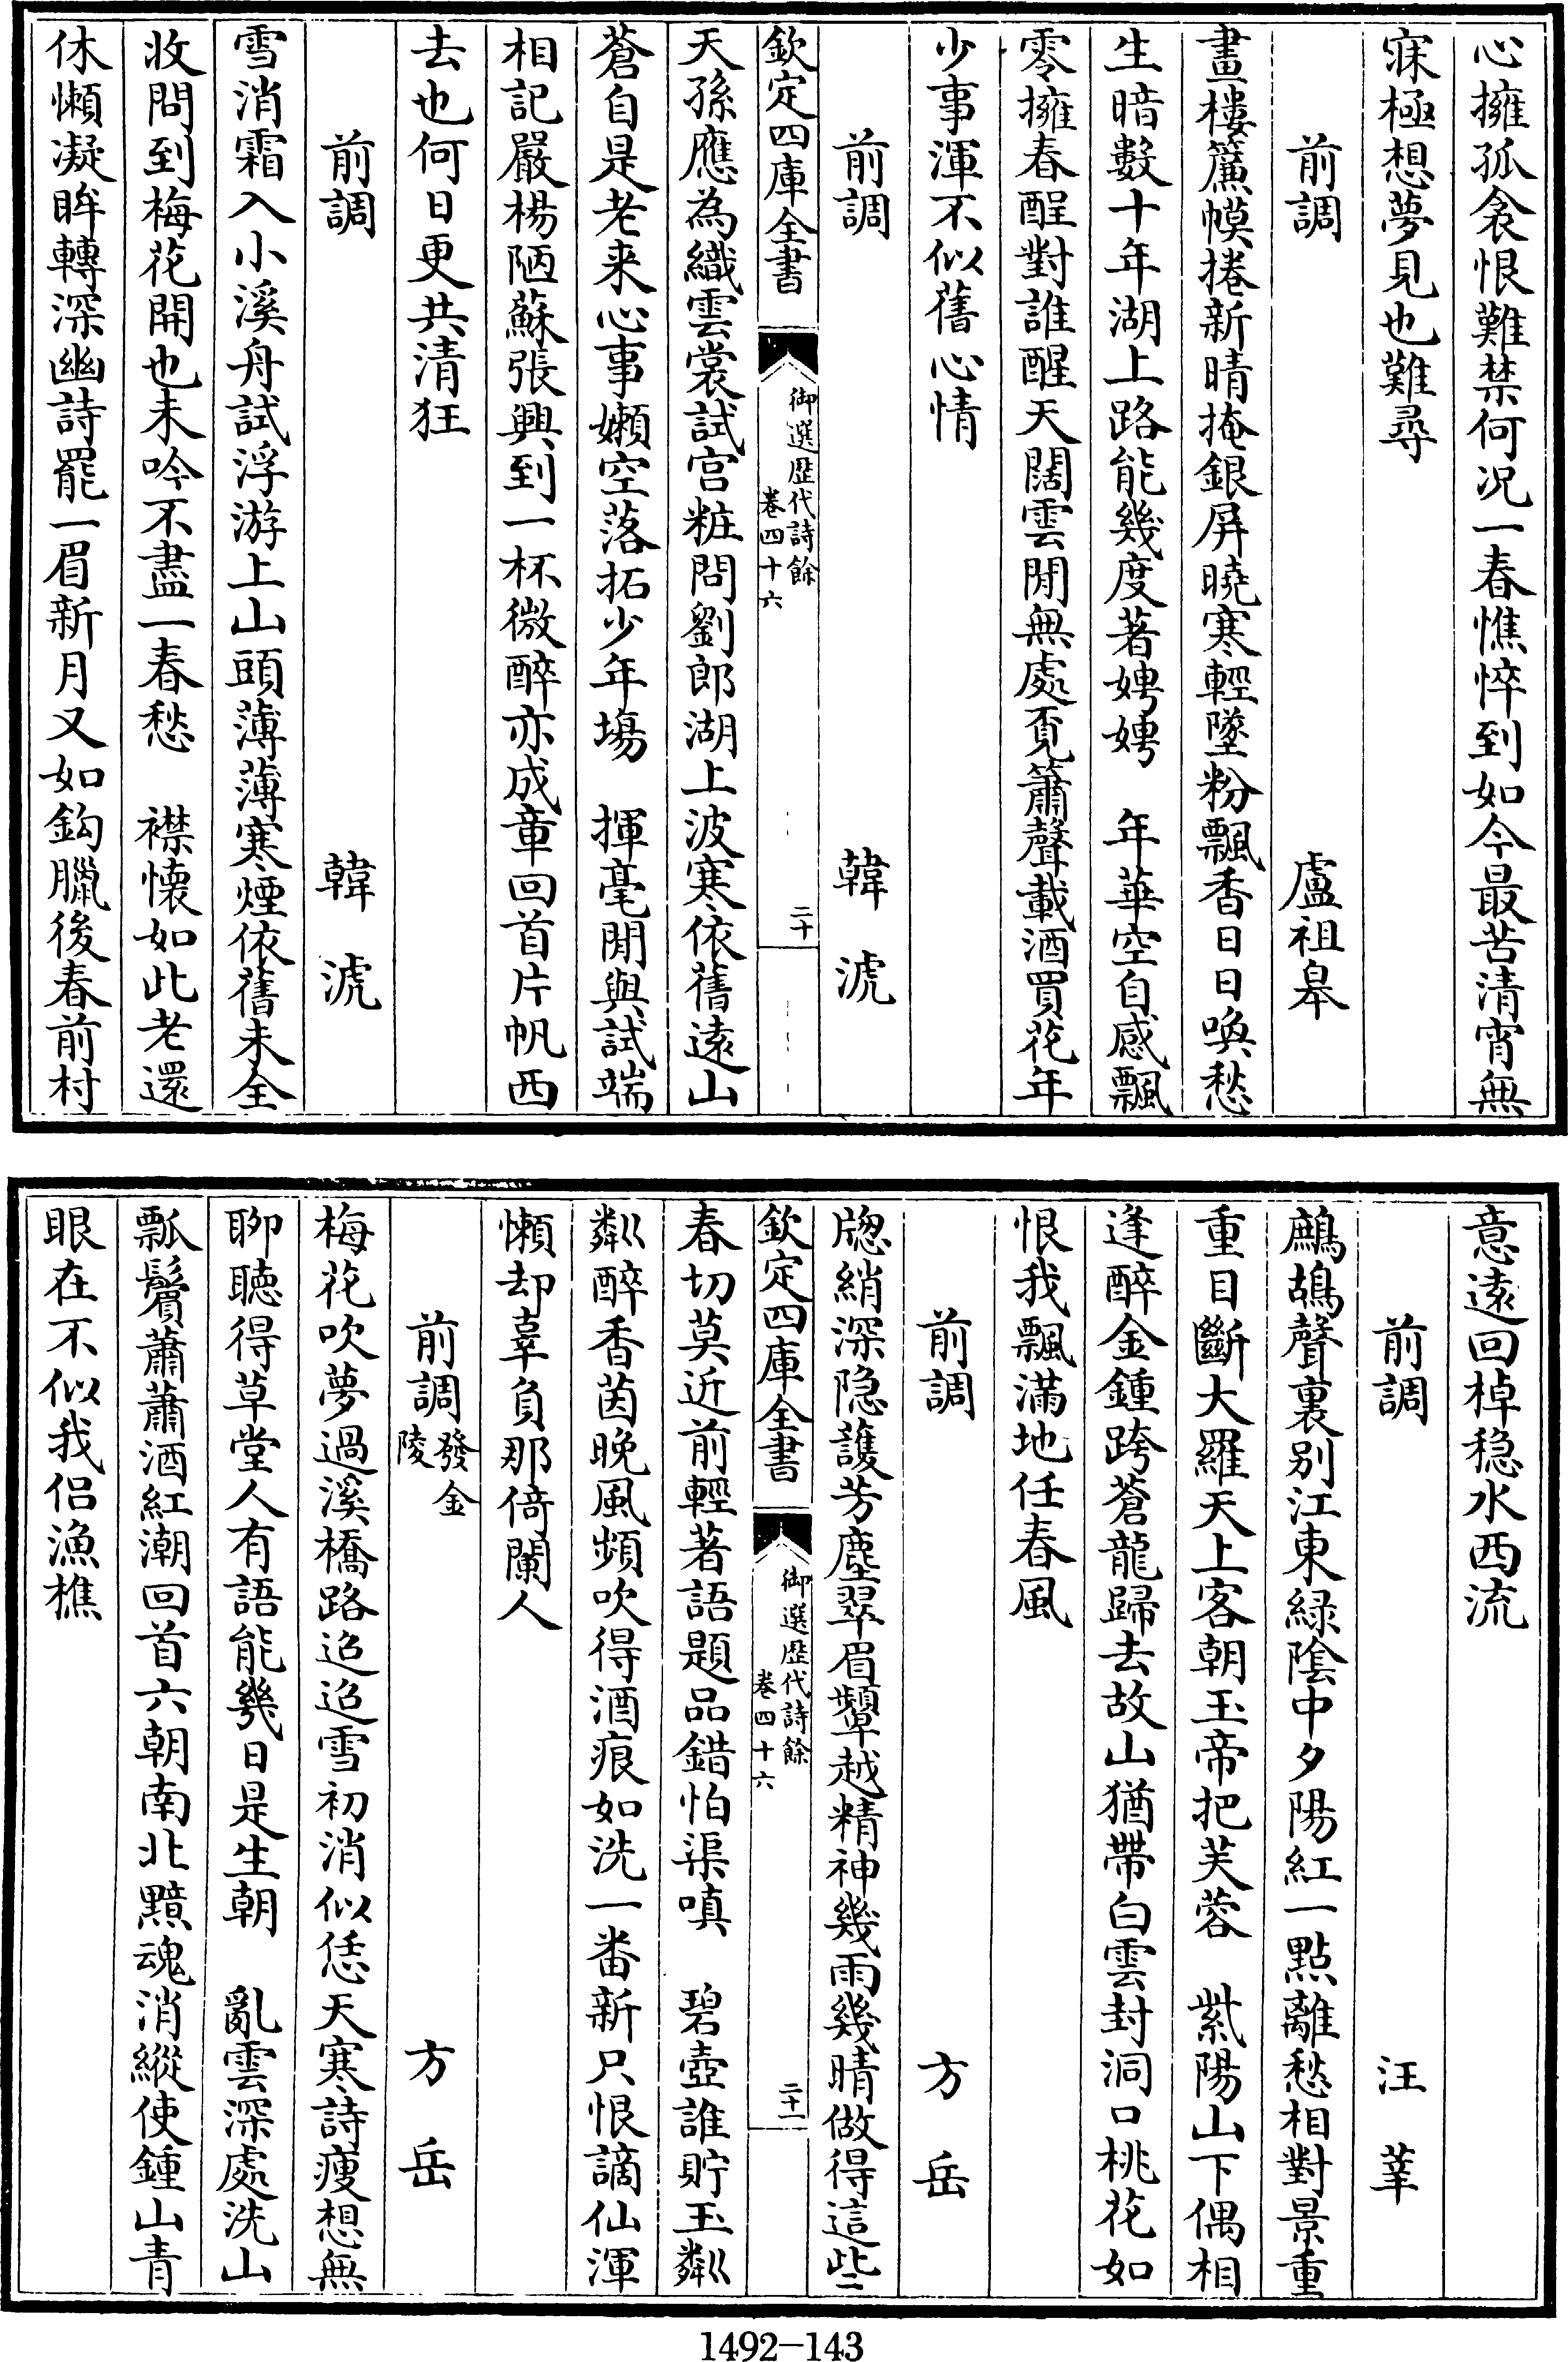 心擁孤衾恨難禁何况一春憔悴到如今最苦清宵無
寐極想夢見也難尋
前調 盧祖皋
畫樓簾幙捲新晴掩銀屏曉寒輕墜粉飄香日日喚愁
生暗數十年湖上路能幾度著娉娉 年華空自感飄
零擁春酲對誰醒天闊雲閒無處覔簫聲載酒買花年
少事渾不似舊心情
前調 韓淲
欽定四庫全書
御選歴代詩餘
卷四十六
二十
天孫應為織雲裳試宫粧問劉郎湖上波寒依舊遠山
蒼自是老来心事嬾空落拓少年場 揮毫閒與試端
相記嚴楊陋蘇張興到一杯微醉亦成章回首片帆西
去也何日更共清狂
前調 韓淲
雪消霜入小溪舟試浮游上山頭薄薄寒煙依舊未全
收問到梅花開也未吟不盡一春愁 襟懷如此老還
休懶凝眸轉深幽詩罷一眉新月又如鈎臘後春前村
意遠回棹稳水西流
前調 汪莘
鷓鴣聲裏别江東緑陰中夕陽紅一點離愁相對景重
重目斷大羅天上客朝玉帝把芙蓉 紫陽山下偶相
逢醉金鍾跨蒼龍歸去故山猶帶白雲封洞口桃花如
恨我飄滿地任春風
前調 方岳
牕綃深隐護芳塵翠眉顰越精神幾雨幾晴做得這些
欽定四庫全書
御選歴代詩餘
卷四十六
二十一
春切莫近前輕著語題品錯怕渠嗔 碧壺誰貯玉粼
粼醉香茵晚風頻吹得酒痕如洗一番新只恨謫仙渾
懶却辜負那倚闌人
前調發金陵 方岳
梅花吹夢過溪橋路迢迢雪初消似恁天寒詩瘦想無
聊聴得草堂人有語能幾日是生朝 亂雲深處洗山
瓢鬢蕭蕭酒紅潮回首六朝南北黯魂消縱使鍾山青
眼在不似我侣漁樵
1492-143